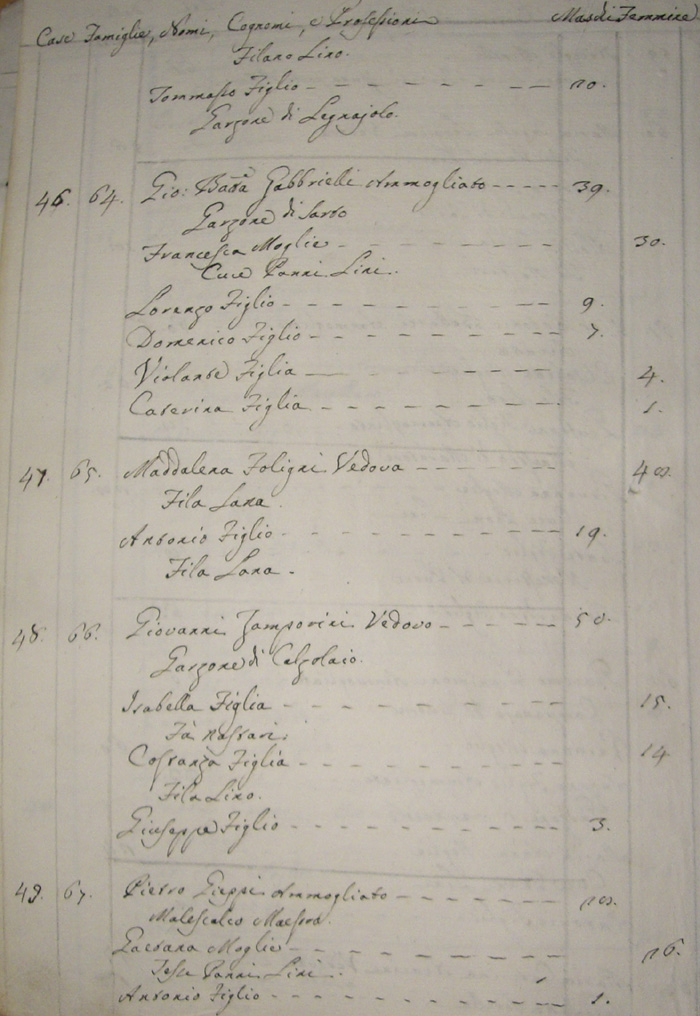 Case Famiglie, Nomi, Cognomi, e Professioni Maschi Femmine
Filano Lino.
Tommaso Figlio 10.
Garzone di Legnajolo.
46. 64. Gio: Batta Gabbrielli Ammogliato 39.
Garzone di Sarto
Francesca Moglie 30.
Cuce Panni Lini.
Lorenzo Figlio 9.
Domenico Figlio 7.
Violante Figlia 4.
Caterina Figlia 1.
47. 65. Maddalena Foligni Vedova 40.
Fila Lana.
Antonio Figlio 19.
Fila Lana.
48. 66. Giovanni Zamponini Vedovo 50.
Garzone di Calzolaio.
Isabella Figlia 15.
Fà Nastari.
Costanza Figlia 14
Fila Lino.
Giuseppe Figlio 3.
49. 67. Pietro Gieppi Ammogliato
Malescalco Maestro.
Gaetana Moglie 26.
Tesse Panni Lini.
Antonio Figlio 1.